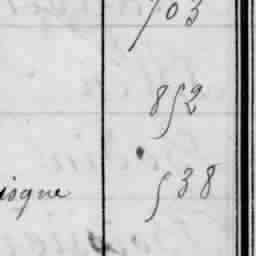 703
852
isque 538